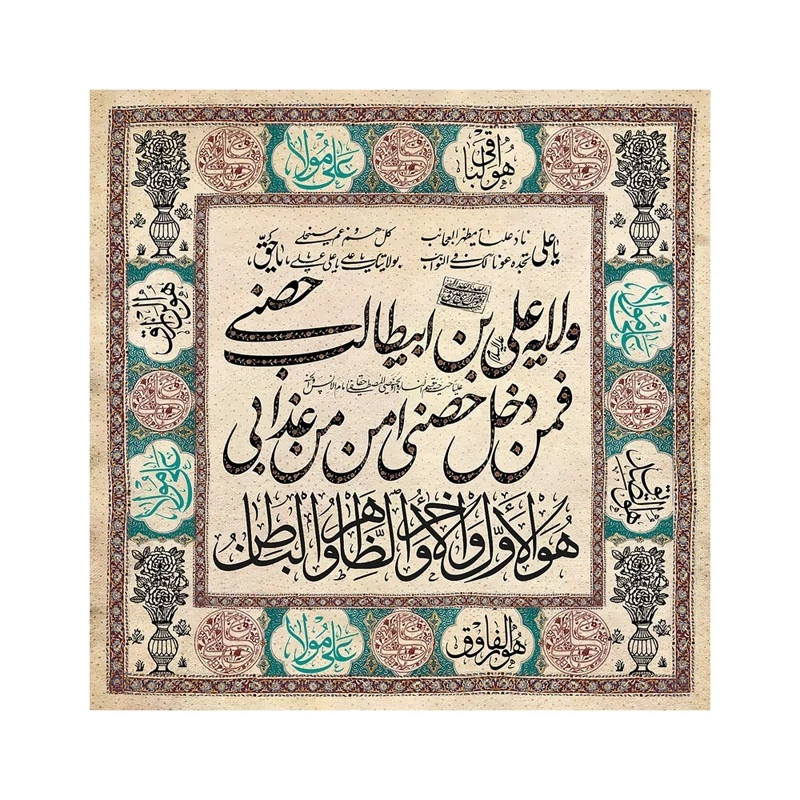 علی مولا
هو الباقی
یا علی
ناد علیا مظهر العجائب
کل هم و غم سینجلی
تجده عونا لک فی النوائب
بولایتک یا علی یا علی یا علی
یا حق
ولایه علی بن ابیطالب حصنی
فمن دخل حصنی امن من عذابی
هو الأول والآخر والظاهر والباطن
هو الرزاق
علی مولا
علی مولا
هو الصدیق
علی مولا
هو الفاروق